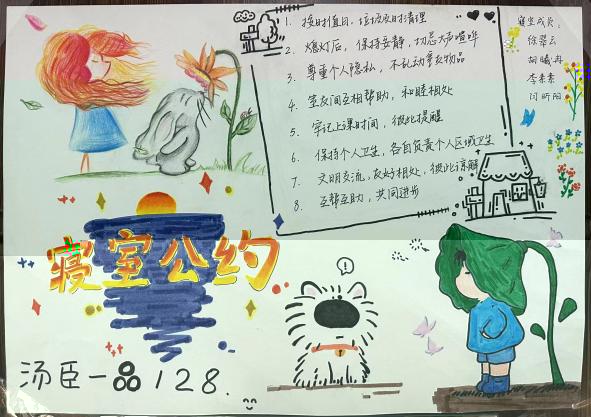 1. 按时值日，垃圾及时清理
2. 熄灯后，保持安静，切忌大声喧哗
3. 尊重个人隐私，不乱动室友物品
4. 室友间互相帮助，和睦相处
5. 牢记上课时间，彼此提醒
6. 保持个人卫生，各自负责个人区域卫生
7. 文明交流，友好相处，彼此谅解
8. 互帮互助，共同进步
寝室成员：
徐翠云
胡曦冉
李素素
闫昕阳
寝室公约
汤臣一品128.